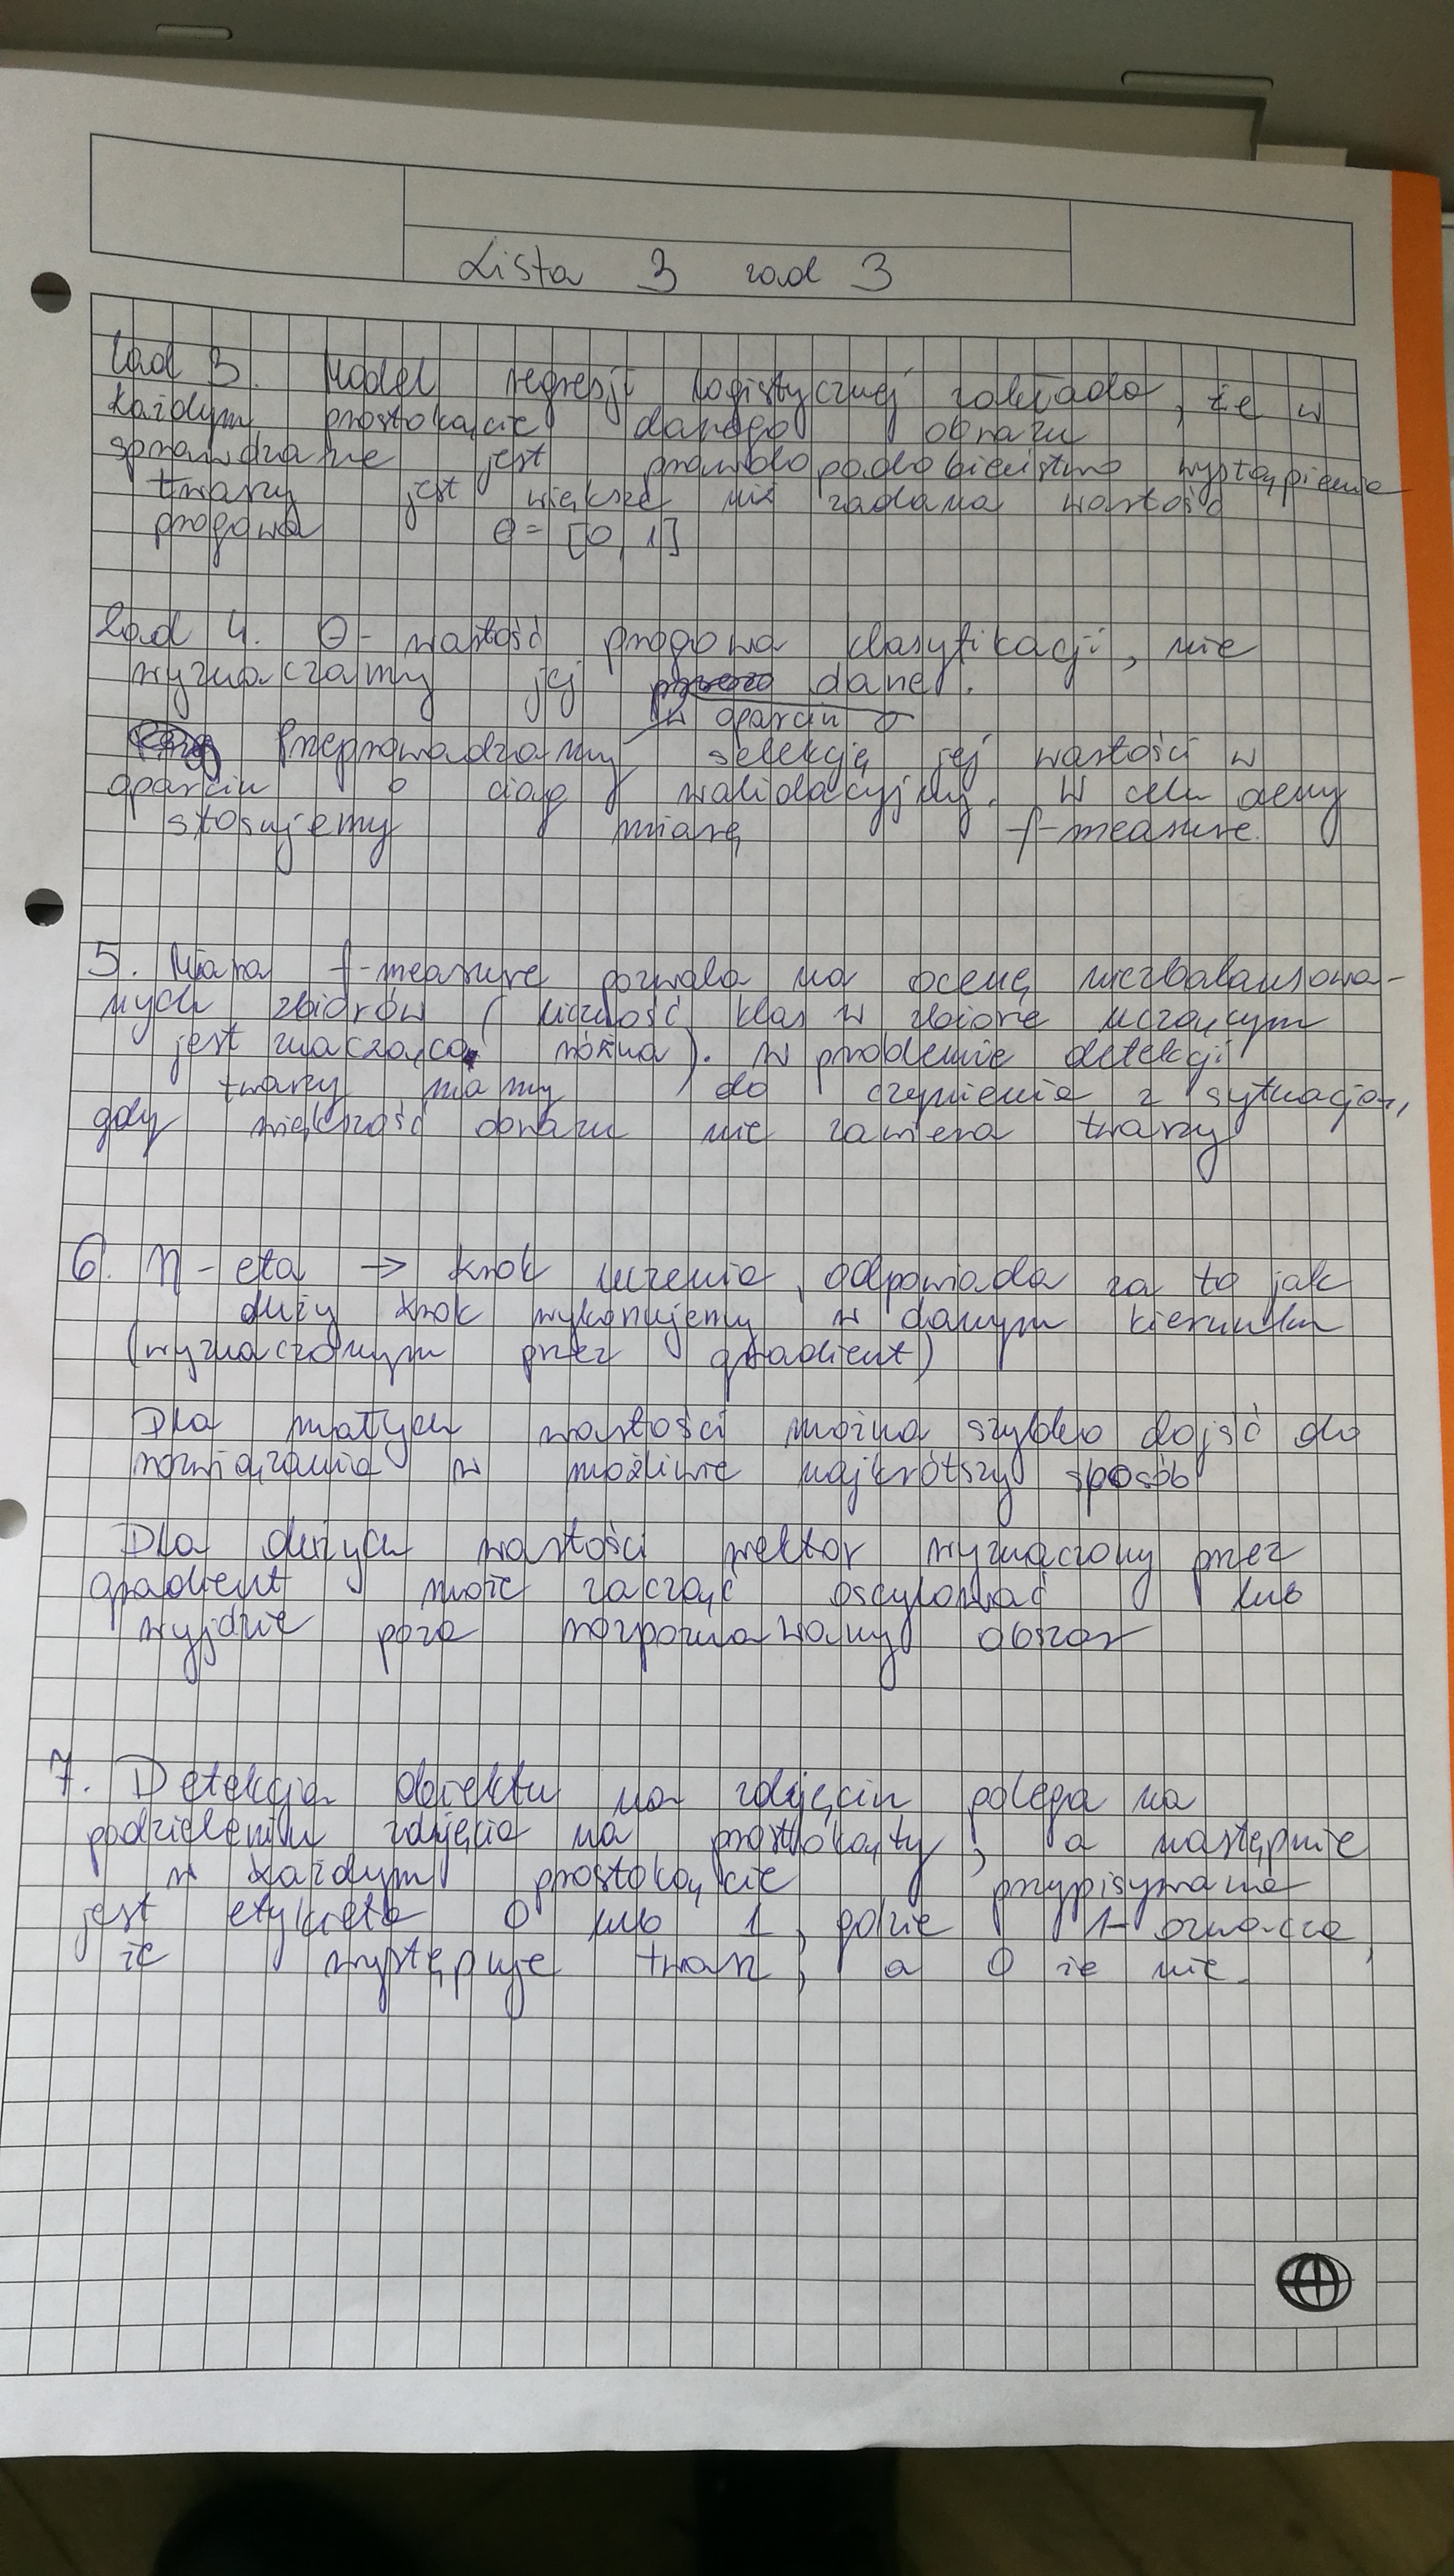 Lista 3 zad 3
Zad 3. Model regresji logistycznej zakłada, że w
każdym prostokącie danego obrazu
sprawdzane jest prawdopodobieństwo wystąpienia
twarzy jest większe niż zadana wartość
progowa θ = [0, 1]
Zad 4. Θ - wartość progowa klasyfikacji, nie
wyznaczamy jej dane.
w oparciu o
Przeprowadzamy selekcję jej wartości w
oparciu o ciąg walidacyjny. W celu oceny
stosujemy miarę f-measure.
5. Miara f-measure pozwala na ocenę niezbalansowa-
nych zbiorów (liczność klas w zbiorze uczącym
jest znacząco różna). W problemie detekcji
twarzy mamy do czynienia z sytuacją,
gdy większość obrazu nie zawiera twarzy
6. η - eta → krok uczenia, odpowiada za to jak
duży krok wykonujemy w danym kierunku
(wyznaczonym przez gradient)
Dla małych wartości można szybko dojść do
rozwiązania w możliwie najkrótszy sposób
Dla dużych wartości wektor wyznaczony przez
gradient może zacząć oscylować lub
wyjdzie poza rozpoznawalny obszar
7. Detekcja obiektu na zdjęciu polega na
podzieleniu zdjęcia na prostokąty, a następnie
w każdym prostokącie przypisywana
jest etykieta 0 lub 1, gdzie 1 - oznacza,
że występuje twarz, a 0 że nie.